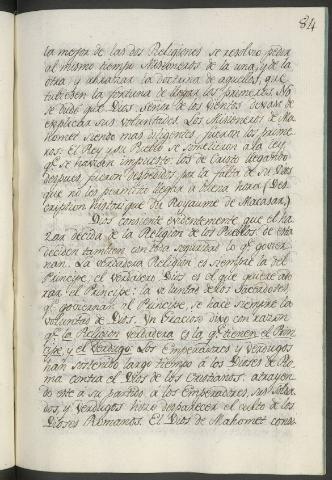 84
la mejor de las dos Religiones se resolvio pedir
al mismo tiempo Misioneros de la una, y de la
otra y abrazar la doctrina de aquellos, que
tubiesen la fortuna de llegar los primeros. No
se dudó que Dios Señor de los vientos dexase de
explicar sus voluntades. Los Misioneros de Ma-
homet siendo mas diligentes fueron los prime-
ros: El Rey y su Pueblo se sometieron a la ley,
qe. se havian impuesto: los de Cristo llegando
despues, fueron despedidos por la falta de su Dios
que no les permitio llegar à buena hora (Des-
cription Historique du Royaume de Macasar.)
Dios consiente evidentemente que el ha-
zar decida de la Religion de los Pueblos: de esta
deciden tambien con otra seguridad lo qe. govier-
nan. La verdadera Religion es siempre la del
Principe, el verdadero Dios es el que quiere ado-
rar el Principe: la voluntad de los Sacerdotes,
qe. goviernan al Principe, se hace siempre la
voluntad de Dios. Un Gracioso dixo con razon
qe. la Religion verdadera es la qe. tienen el Prin-
cipe, y el Verdugo. Los Emperadores y Verdugos
han sostenido largo tiempo à los Dioses de Ro-
ma contra el Dios de los Cristianos. atrayen-
do este a su partido à los Emperadores, sus Solda-
dos, y Verdugos hizo desparecer el culto de los
Dioses Romanos. El Dios de Mahomet consi-